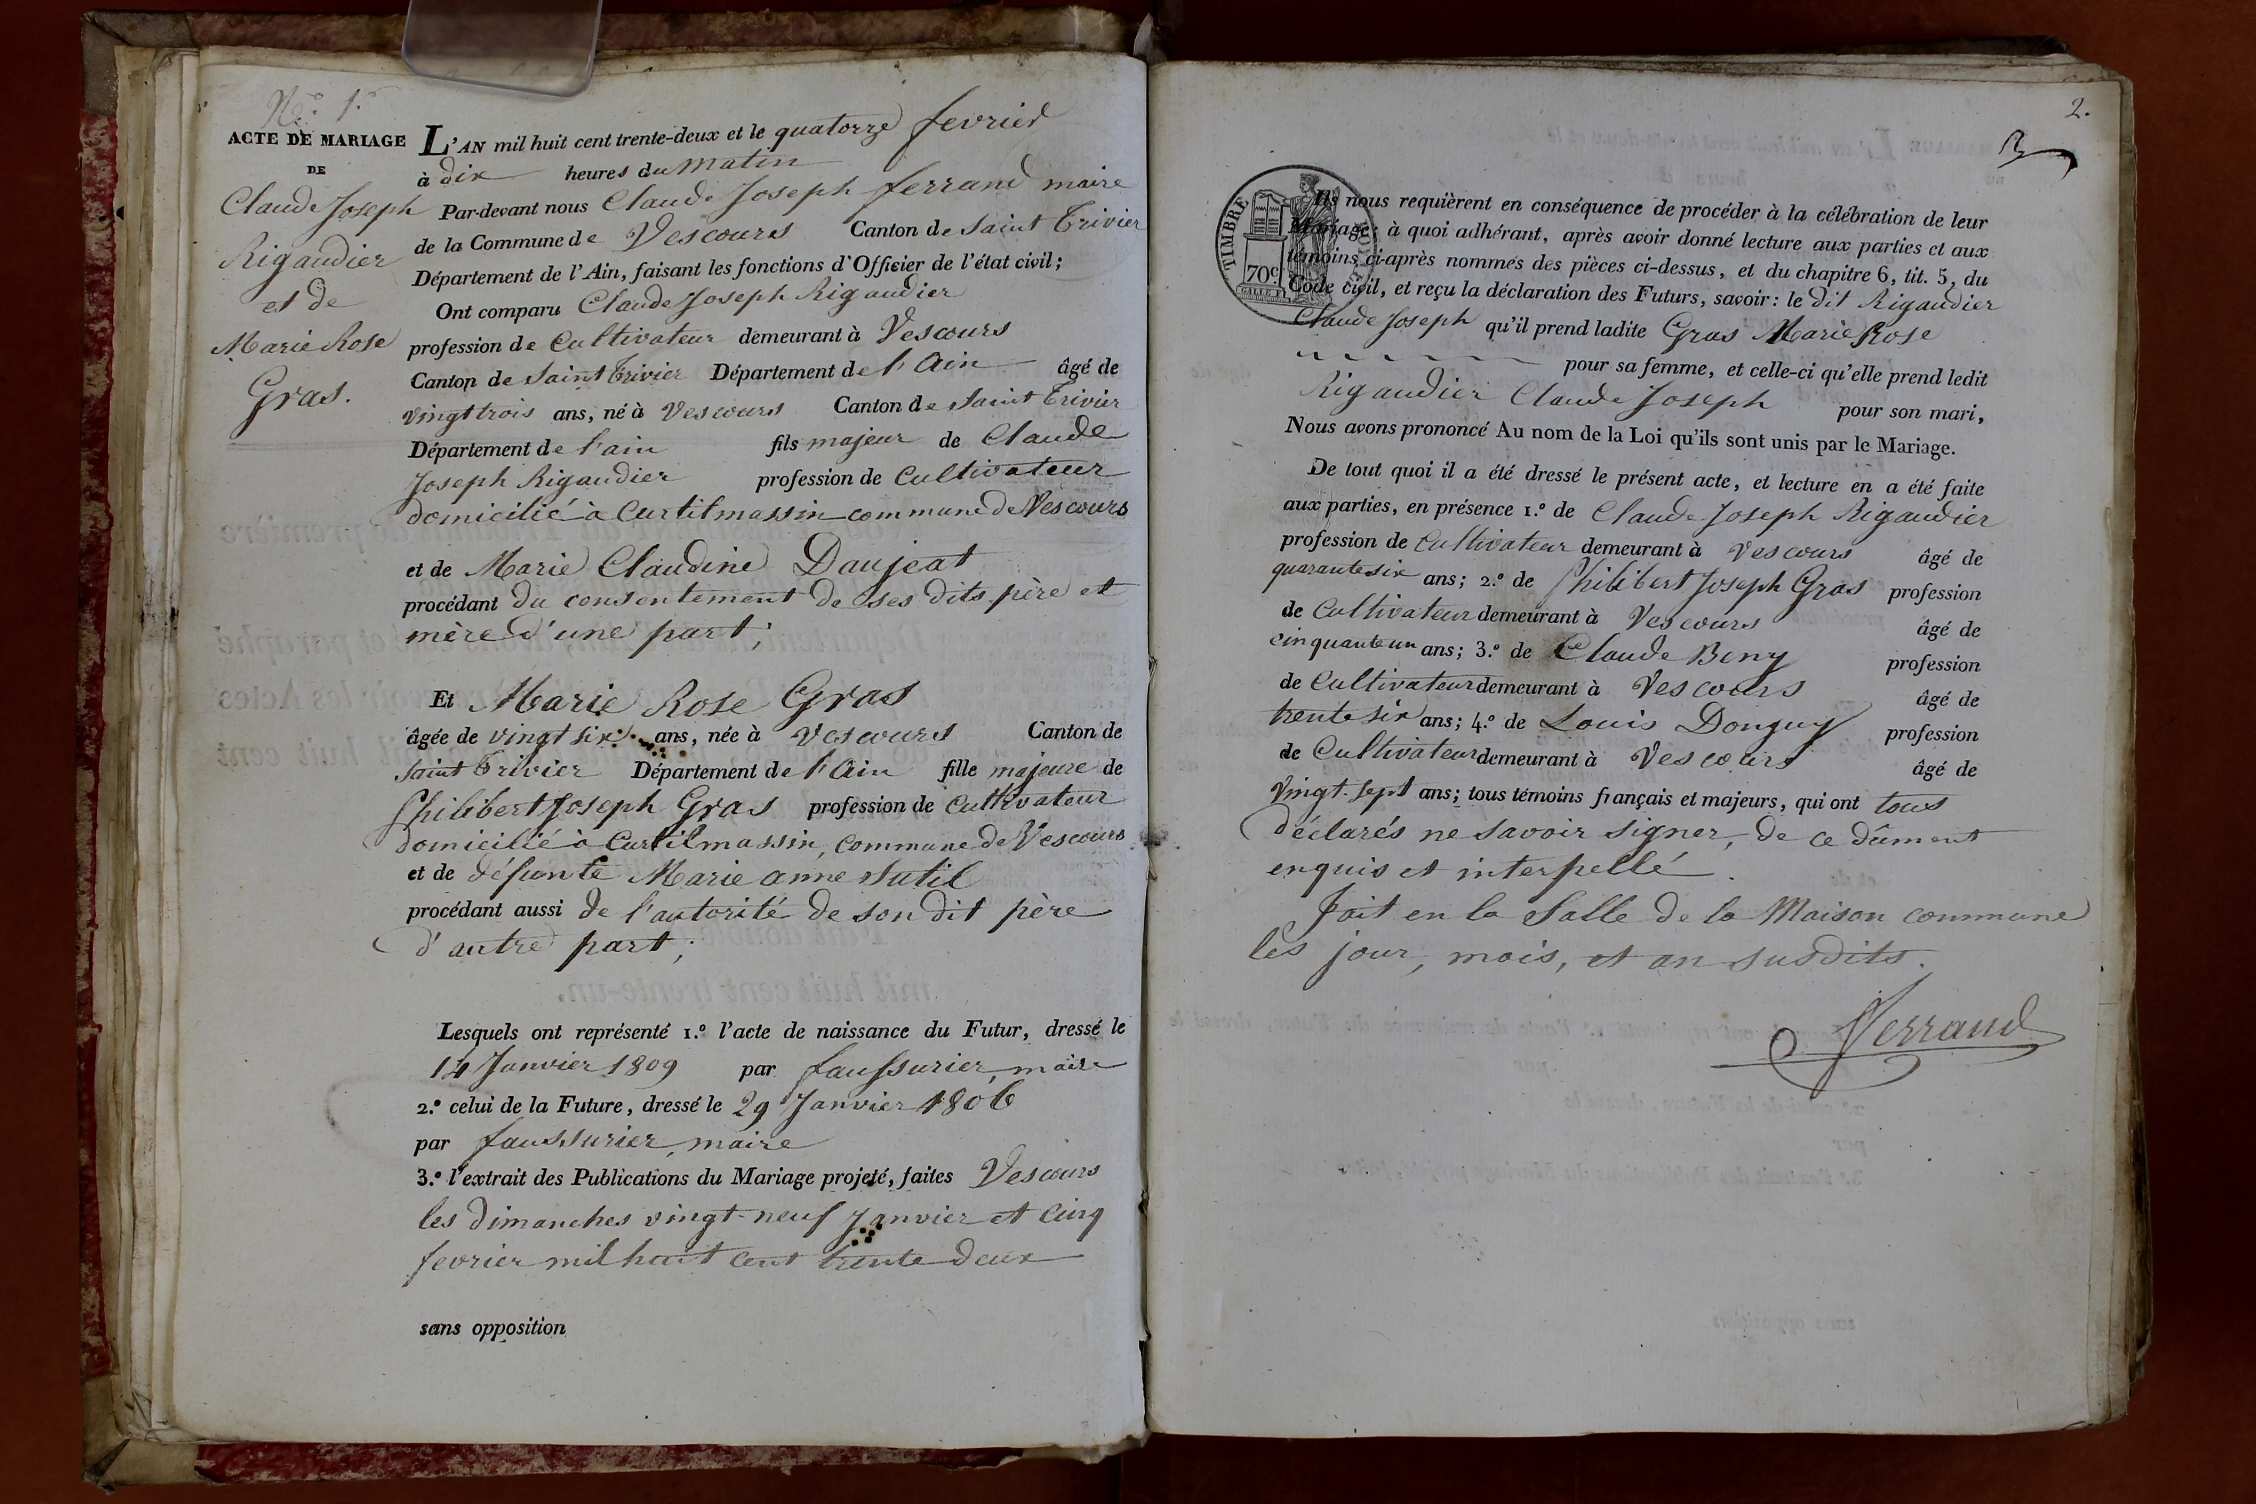 N.º 1.º
ACTE DE MARIAGE
DE
Claude Joseph
Rigaudier
et de
Marie Rose
Gras.
L'AN mil huit cent trente-deux et le quatorze fevrier
à dix heures du matin
Par-devant nous Claude Joseph ferrand maire
de la Commune de Vescours Canton de Saint Trivier
Département de l'Ain, faisant les fonctions d'Officier de l'état civil;
Ont comparu Claude Joseph Rigaudier
profession de Cultivateur demeurant à Vescours
Canton de Saint Trivier Département de l'Ain âgé de
vingt trois ans, né à Vescours Canton de Saint Trivier
Département de l'ain fils majeur de Claude
Joseph Rigaudier profession de Cultivateur
domicilié à Curtilmassin commune de Vescours
et de Marie Claudine Daujeat
procédant du consentement de ses dits père et
mère d'une part;
Et Marie Rose Gras
âgée de vingt six ans, née à Vescours Canton de
Saint Trivier Département de l'Ain fille majeure de
Philibert Joseph Gras profession de Cultivateur
domicilié à Curtilmassin, commune de Vescours
et de défunte Marie anne Sutil
procédant aussi de l'autorité de son dit père
d'autre part;
Lesquels ont représenté 1.º l'acte de naissance du Futur, dressé le
14 Janvier 1809 par faussurier, maire
2.º celui de la Future, dressé le 29 Janvier 1806
par faussurier, maire
3.º l'extrait des Publications du Mariage projeté, faites Vescours
les dimanches vingt-neuf Janvier et cinq
fevrier mil huit cent trente deux
sans opposition
2.
TIMBRE ROYAL
70c
Ils nous requièrent en conséquence de procéder à la célébration de leur
Mariage; à quoi adhérant, après avoir donné lecture aux parties et aux
témoins ci-après nommés des pièces ci-dessus, et du chapitre 6, tit. 5, du
Code civil, et reçu la déclaration des Futurs, savoir: le dit Rigaudier
Claude Joseph qu'il prend ladite Gras Marie Rose
pour sa femme, et celle-ci qu'elle prend ledit
Rigaudier Claude Joseph pour son mari,
Nous avons prononcé Au nom de la Loi qu'ils sont unis par le Mariage.
De tout quoi il a été dressé le présent acte, et lecture en a été faite
aux parties, en présence 1.º de Claude Joseph Rigaudier
profession de Cultivateur demeurant à Vescours âgé de
quarante six ans; 2.º de Philibert Joseph Gras profession
de Cultivateur demeurant à Vescours âgé de
cinquante un ans; 3.º de Claude Beny profession
de Cultivateur demeurant à Vescours âgé de
trente six ans; 4.º de Louis Donguy profession
de Cultivateur demeurant à Vescours âgé de
vingt-sept ans; tous témoins français et majeurs, qui ont tous
déclarés ne savoir signer, de ce dûment
enquis et interpellé.
Fait en la Salle de la Maison commune
les jour, mois, et an susdits.
Ferrand